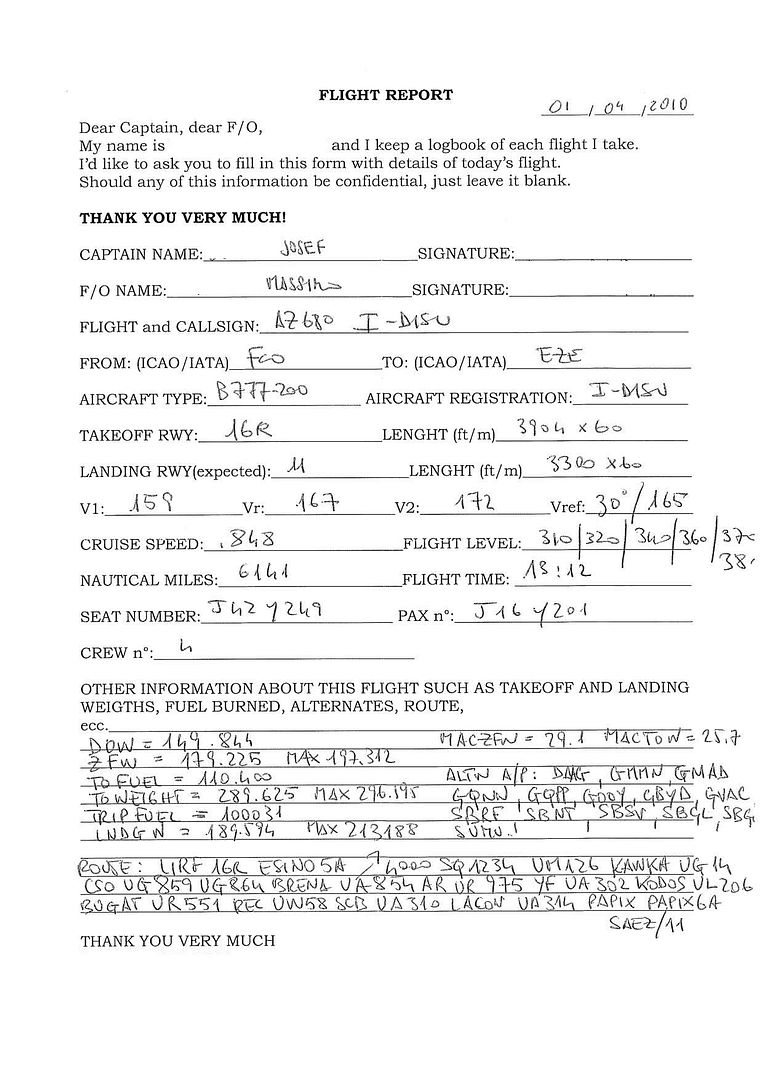 FLIGHT REPORT
01 / 04 / 2010
Dear Captain, dear F/O,
My name is and I keep a logbook of each flight I take.
I'd like to ask you to fill in this form with details of today's flight.
Should any of this information be confidential, just leave it blank.
THANK YOU VERY MUCH!
CAPTAIN NAME: JOSEF SIGNATURE:
F/O NAME: MASSIMO SIGNATURE:
FLIGHT and CALLSIGN: AZ680 I-DISU
FROM: (ICAO/IATA) FCO TO: (ICAO/IATA) EZE
AIRCRAFT TYPE: B777-200 AIRCRAFT REGISTRATION: I-DISU
TAKEOFF RWY: 16R LENGHT (ft/m) 3904 x 60
LANDING RWY(expected): 11 LENGHT (ft/m) 3300 x 60
V1: 159 Vr: 167 V2: 172 Vref: 30°/165
CRUISE SPEED: .848 FLIGHT LEVEL: 310/320/340/360/370
380
NAUTICAL MILES: 6141 FLIGHT TIME: 13:12
SEAT NUMBER: J42 Y249 PAX n°: J16 Y201
CREW n°: 4
OTHER INFORMATION ABOUT THIS FLIGHT SUCH AS TAKEOFF AND LANDING
WEIGTHS, FUEL BURNED, ALTERNATES, ROUTE,
ecc.
DOW = 149.844 MACZFW = 29.1 MACTOW = 25.7
ZFW = 179.225 MAX 197.312
TO FUEL = 110.400 ALTN A/P: DAAG, GMMN, GMAD
TO WEIGHT = 289.625 MAX 296.595 GQNN, GQPP, GOOY, GBYD, GVAC
TRIP FUEL = 100031 SBRF, SBNT, SBSV, SBGL, SBG
LNDG W = 189.594 MAX 213188 SUMU
ROUTE: LIRF 16R ESINO5A 4000 SQ1234 UM126 KAWKA UG14
CSO UG859 UG864 BRENA UA854 AR UR 975 YF UA302 KODOS UL206
BUGAT UR551 REC UW58 SCB UA310 LACON UA314 PAPIX PAPIX6A
SAEZ/11
THANK YOU VERY MUCH